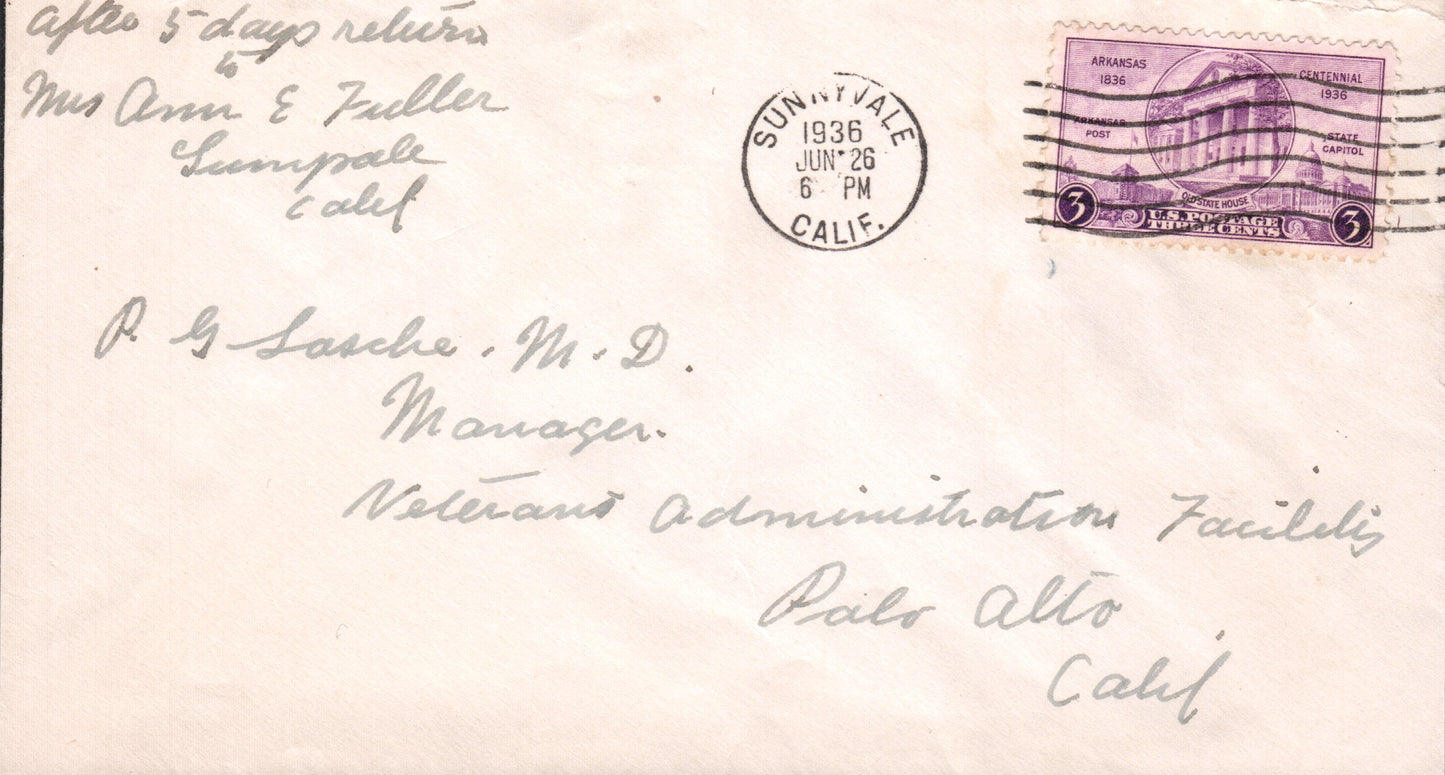 after 5 days return
to
Mrs Ann E Fuller
Calif
SUNNYVALE
1936
JUN 26
6 PM
CALIF.
ARKANSAS
1836
CENTENNIAL
1936
ARKANSAS
POST
STATE
CAPITOL
OLD STATE HOUSE
3
U.S. POSTAGE
THREE CENTS
3
P. G Sasche. M. D.
Manager.
Veterans Administration Facility
Palo Alto
Calif